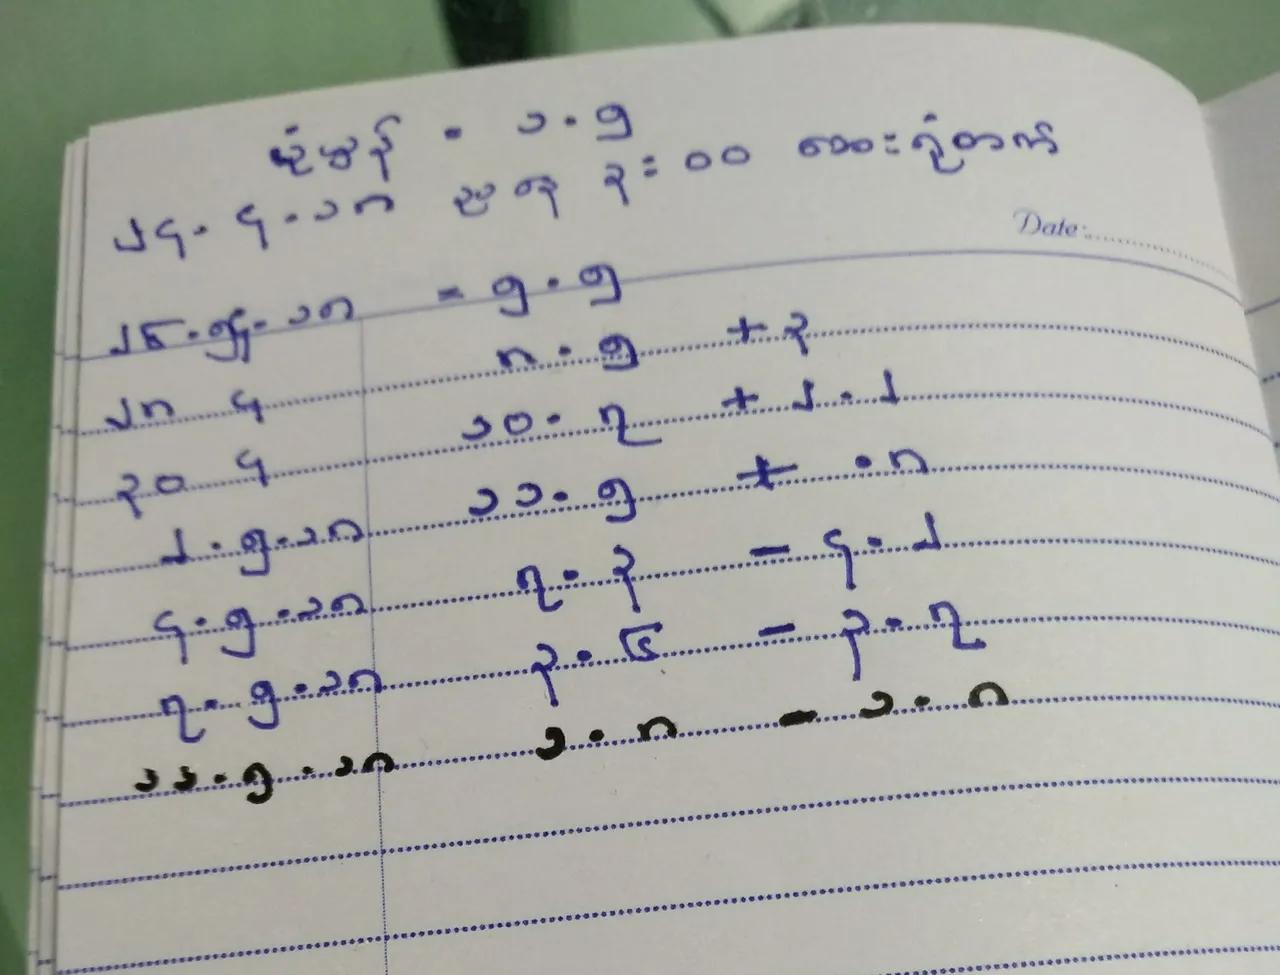 ပုံမှန် - ၁.၅
၂၄.၄.၁၈ ညနေ ၃:၀၀ ဆေးရုံတက်
Date:
၂၆.၄.၁၈ = ၅.၅
၂၈ ၄ ၈.၅ +၃
၃၀ ၄ ၁၀.၇ +၂.၂
၂.၅.၁၈ ၁၁.၅ + .၈
၄.၅.၁၈ ၇.၃ - ၄.၂
၇.၅.၁၈ ၃.၆ - ၃.၇
၁၁.၅.၁၈ ၁.၈ - ၁.၈